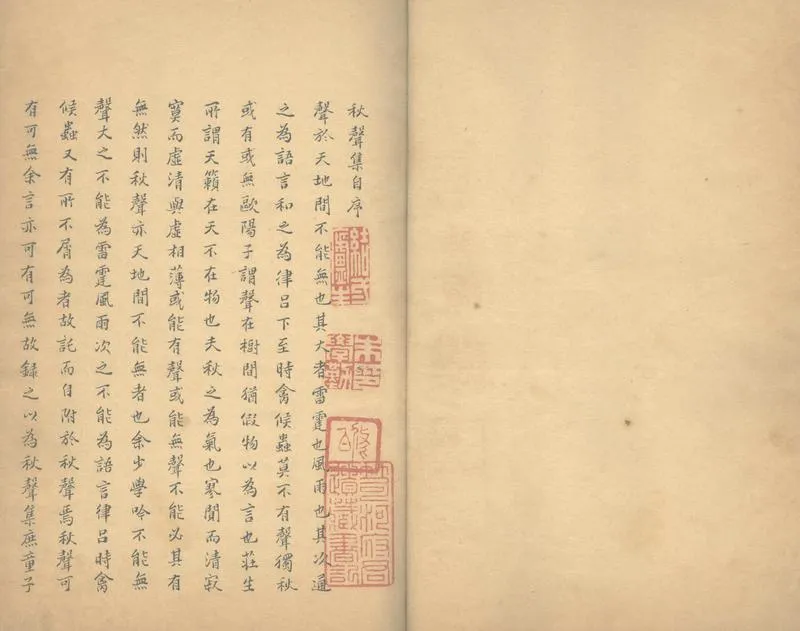 秋聲集自序
聲於天地間不能無也其大者雷霆也風雨也其次通
之為語言和之為律呂下至時禽候蟲莫不有聲獨秋
或有或無歐陽子謂聲在樹間猶假物以為言也莊生
所謂天籟在天不在物也夫秋之為氣也寒閒而清寂
寞而虛清與虛相薄或能有聲或能無聲不能必其有
無然則秋聲亦天地間不能無者也余少學吟不能無
聲大之不能為雷霆風雨次之不能為語言律呂時禽
候蟲又有所不屑為者故託而自附於秋聲焉秋聲可
有可無余言亦可有可無故錄之以為秋聲集庶童子